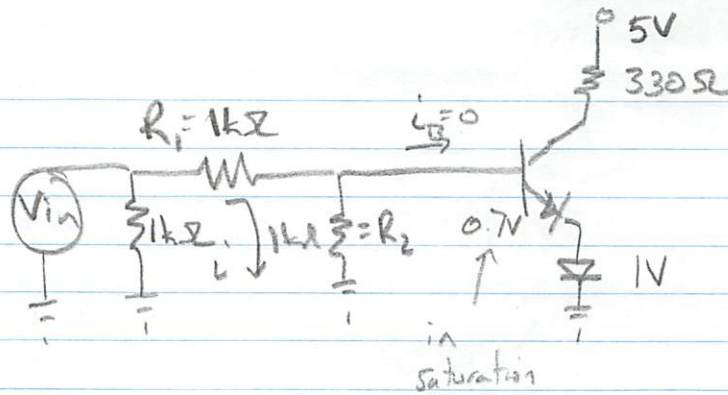 5V
330Ω
R₁=1kΩ
i_B=0
Vin
1kΩ
i
1kΩ
=R₂
0.7V
1V
in
saturation